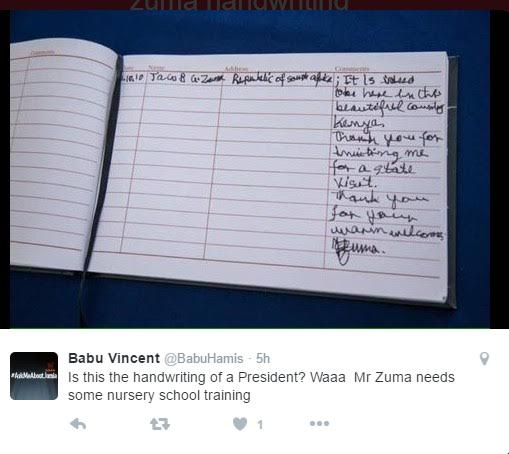 zuma handwriting
Comments
Name
Address
Comments
10.10 Jacob G. Zuma Republic of south africa ; It Is
to be here in this
beautiful country
Kenya.
Thank you for
Inviting me
for a state
Visit.
Thank you
for your
warm welcome.
Zuma.
#AskMeAboutJamia
Babu Vincent @BabuHamis · 5h
Is this the handwriting of a President? Waaa Mr Zuma needs
some nursery school training
1